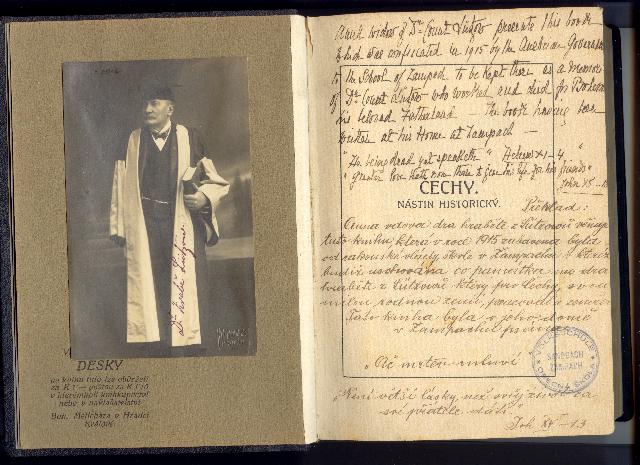 Dr. Count Lützow presents this book
which was confiscated in 1915 by the Austrian Government
to the School of Zampach to be kept there as a Memorial
of Dr. Count Lützow who worked and died for Bohemia
his beloved Fatherland – the book having been
written at his Home at Zampach –
"He being dead yet speaketh" Hebrews XI – 4
"greater love hath no man than to give his life for his friends"
John XV – 13
ČECHY.
NÁSTIN HISTORICKÝ.
Překlad:
vdova dra hraběte z Lützowů věnuje
tuto knihu, která v roce 1915 zabavena byla
od rakouské vlády škole v Žampachu
uschována co památka na dra
hraběte z Lützowů který pro Čechy, svou
milou rodnou zemi, pracoval a zemřel.
Tato kniha byla v jeho domě
v Žampachu psána.
Ač mrtev mluví
"Není větší lásky, než svůj život za
své přátele dáti."
Joh XV – 13
ŽAMPACH
DESKY
na knihu tuto lze obdržeti
v kterémkoli knihkupectví
nebo v nakladatelství
Boh. Melichara v Hradci
Králové.